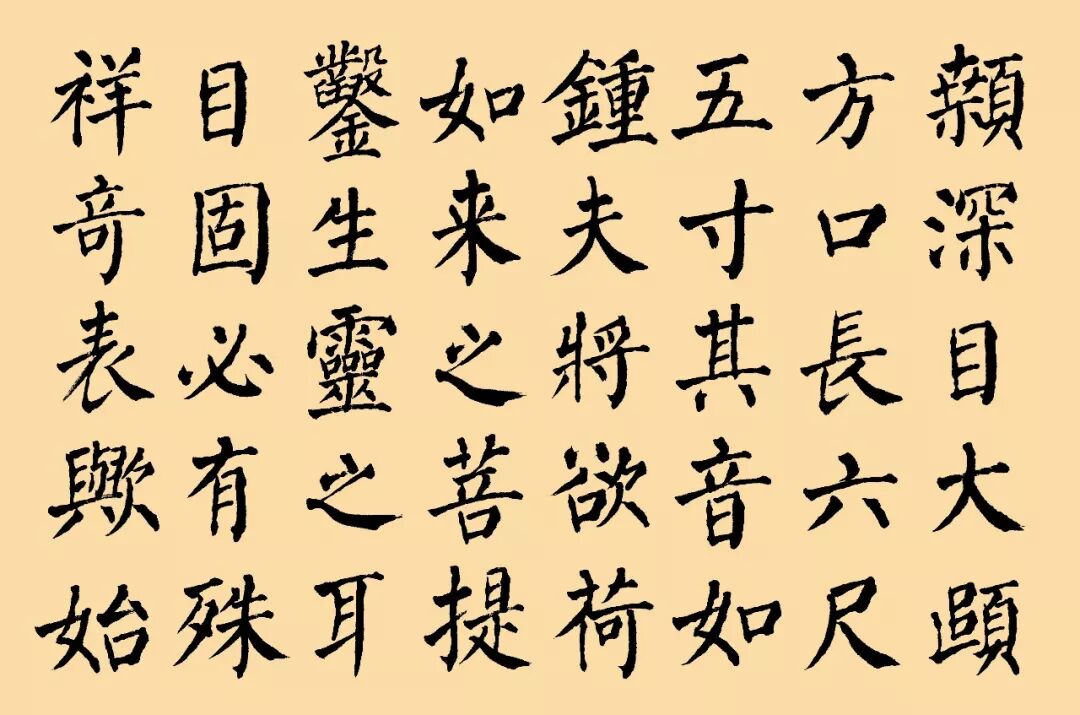 顙深目大頤
方口長六尺
五寸其音如
鍾夫將欲荷
如来之菩提
鑿生靈之耳
目固必有殊
祥奇表歟始